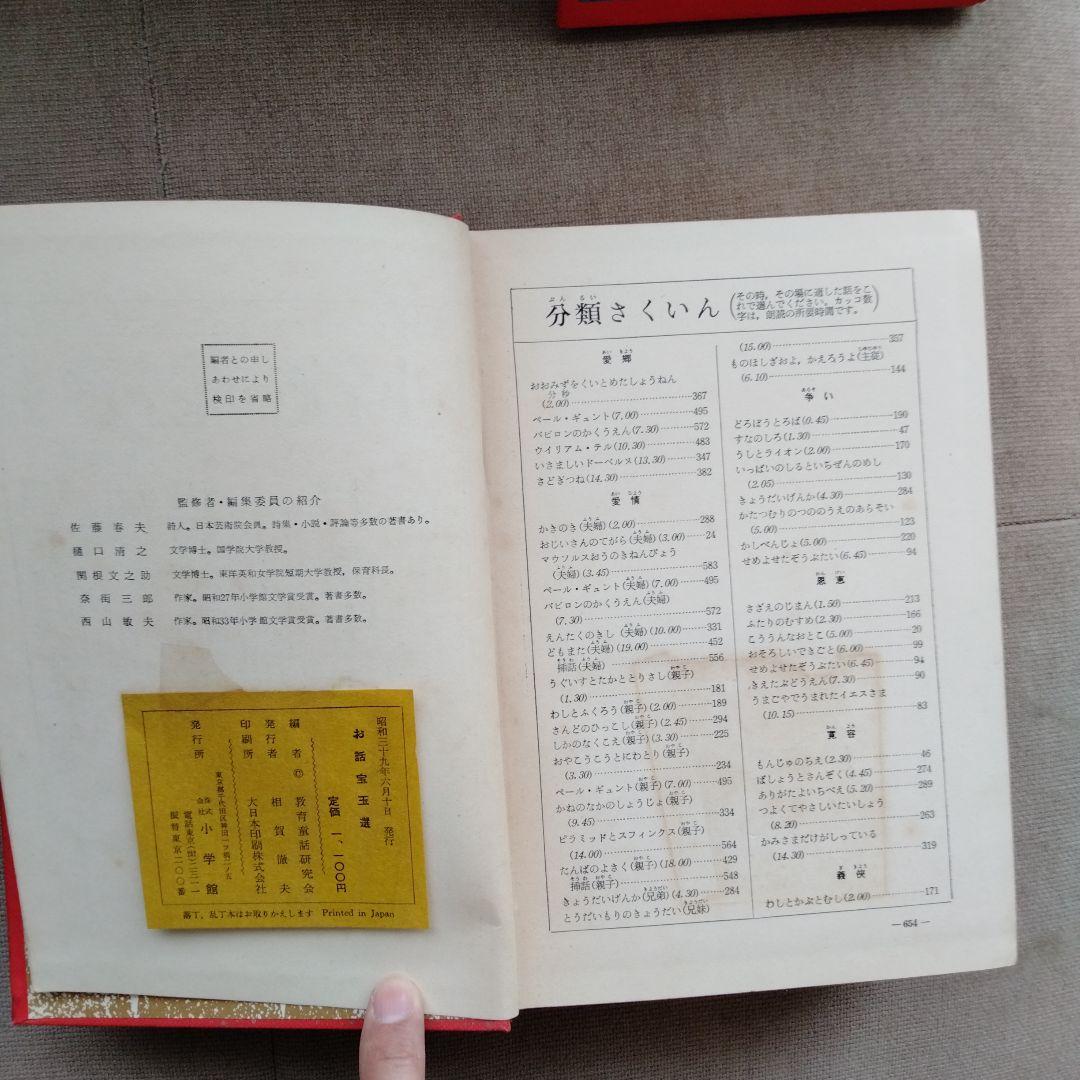 編者との申し
あわせにより
検印を省略
監修者・編集委員の紹介
佐藤春夫 詩人。日本芸術院会員。詩集・小説・評論等多数の著書あり。
樋口清之 文学博士。国学院大学教授。
関根文之助 文学博士。東洋英和女学院短期大学教授，保育科長。
奈街三郎 作家。昭和27年小学館文学賞受賞。著書多数。
西山敏夫 作家。昭和33年小学館文学賞受賞。著書多数。
昭和三十九年六月十日 発行
お話宝玉選
定価 一、一〇〇円
編者 © 教育童話研究会
発行者 相賀徹夫
印刷所 大日本印刷株式会社
発行所 株式会社 小学館
東京都千代田区神田一ツ橋二ノ五
振替東京二〇〇番
落丁，乱丁本はお取りかえします Printed in Japan
ぶんるい
分類さくいん
(その時，その場に適した話をこ
れで選んでください。カッコ数
字は，朗読の所要時間です。)
あいきょう
愛郷
おおみずをくいとめたしょうねん
分 秒
(2.00)………367
ペール・ギュント(7.00)………495
バビロンのかくうえん(7.30)………572
ウイリアム・テル(10.30)………483
いさましいドーベルヌ(13.30)………347
さどぎつね(14.30)………382
あいじょう
愛情
かきのき(夫婦)(2.00)………288
おじいさんのてがら(夫婦)(3.00)……24
マウソルスおうのきねんびょう
(夫婦)(3.45)………583
ペール・ギュント(夫婦)(7.00)………495
バビロンのかくうえん(夫婦)
(7.30)………572
えんたくのきし(夫婦)(10.00)………331
どもまた(夫婦)(19.00)………452
挿話(夫婦)………556
うぐいすとたかととりさし(親子)
(1.30)………181
わしとふくろう(親子)(2.00)………189
さんどのひっこし(親子)(2.45)………294
しかのなくこえ(親子)(3.30)………225
おやこうこうとにわとり(親子)
(3.30)………234
ペール・ギュント(親子)(7.00)………495
かねのなかのしょうじょ(親子)
(9.45)………334
ピラミッドとスフィンクス(親子)
(14.00)………564
たんばのよさく(親子)(18.00)………429
挿話(親子)………548
きょうだいげんか(兄弟)(4.30)………284
とうだいもりのきょうだい(兄妹)
(15.00)………357
ものほしざおよ，かえろうよ(主従)
(6.10)………144
あらそ
争い
どろぼうとろば(0.45)………190
すなのしろ(1.30)………47
うしとライオン(2.00)………170
いっぱいのしるといちぜんのめし
(2.05)………130
きょうだいげんか(4.30)………284
かたつむりのつののうえのあらそい
(5.00)………123
かしべんじょ(5.00)………220
せめよせたぞうぶたい(6.45)………94
おんけい
恩恵
さざえのじまん(1.50)………213
ふたりのむすめ(2.30)………166
こううんなおとこ(5.00)………20
おそろしいできごと(6.00)………99
せめよせたぞうぶたい(6.45)………94
きえたぶどうえん(7.30)………90
うまごやでうまれたイエスさま
(10.15)………83
かんよう
寛容
もんじゅのちえ(2.30)………46
ばしょうとさんぞく(4.45)………274
ありがたよいちべえ(5.20)………289
つよくてやさしいたいしょう
(8.20)………263
かみさまだけがしっている
(14.30)………319
ぎきょう
義俠
わしとかぶとむし(2.00)………171
— 654 —